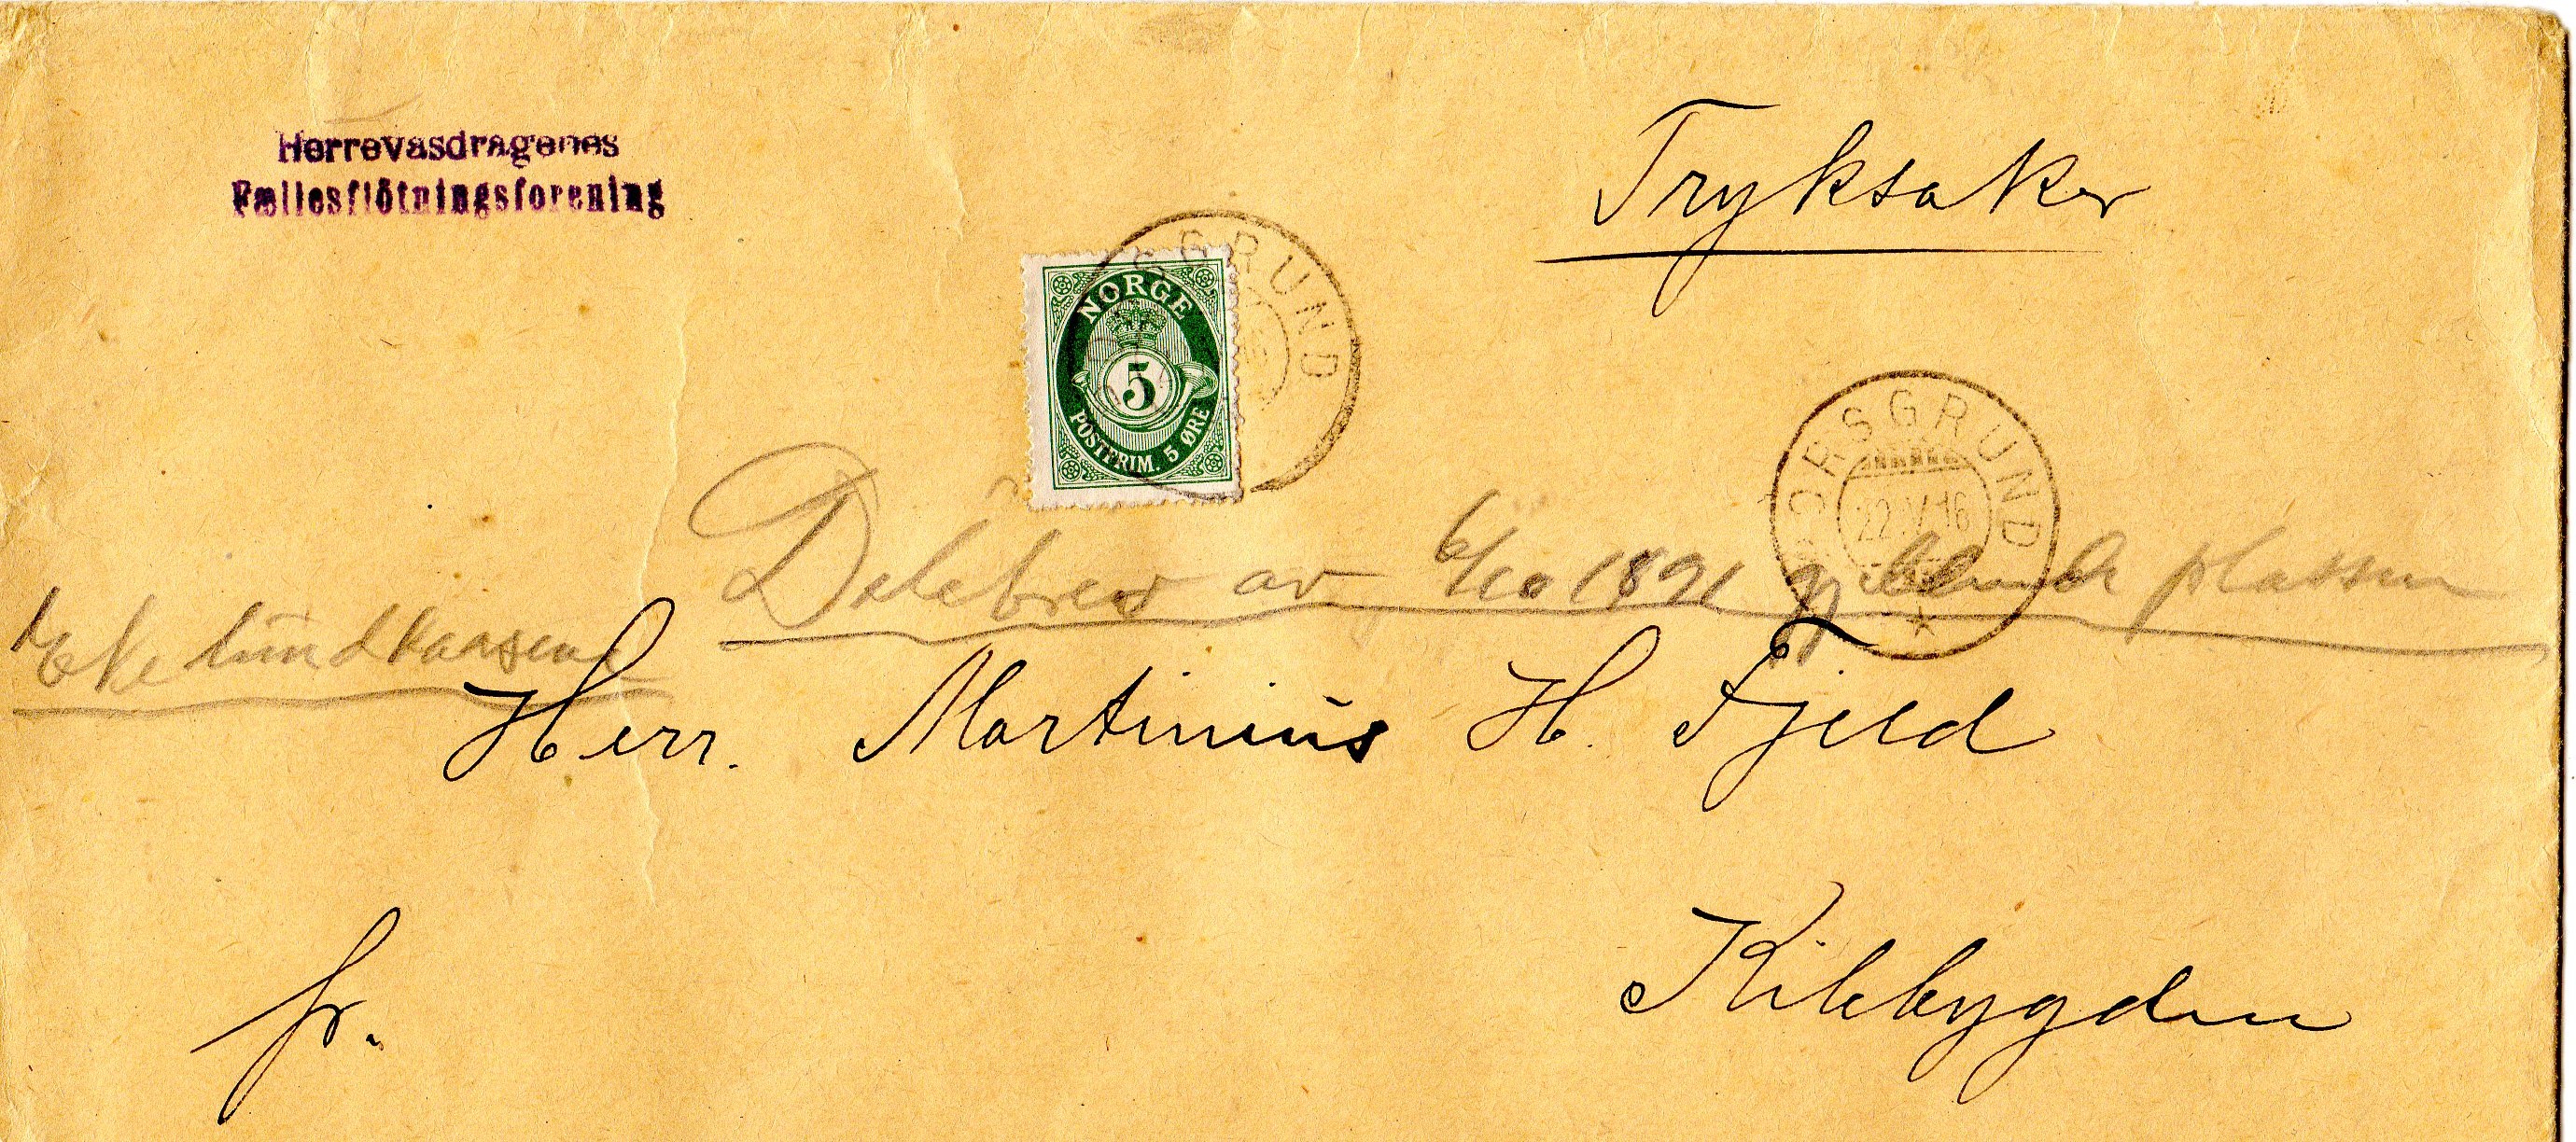 Herrevasdragenes
Fællesflötningsforening
Tryksaker
PORSGRUND
NORGE
5
POSTFRIM. 5 ØRE
PORSGRUND
22 V 16
Delebrev av 6/10 1891 plassen
Herr. Martinius H. Fjeld
fr. Kilebygden